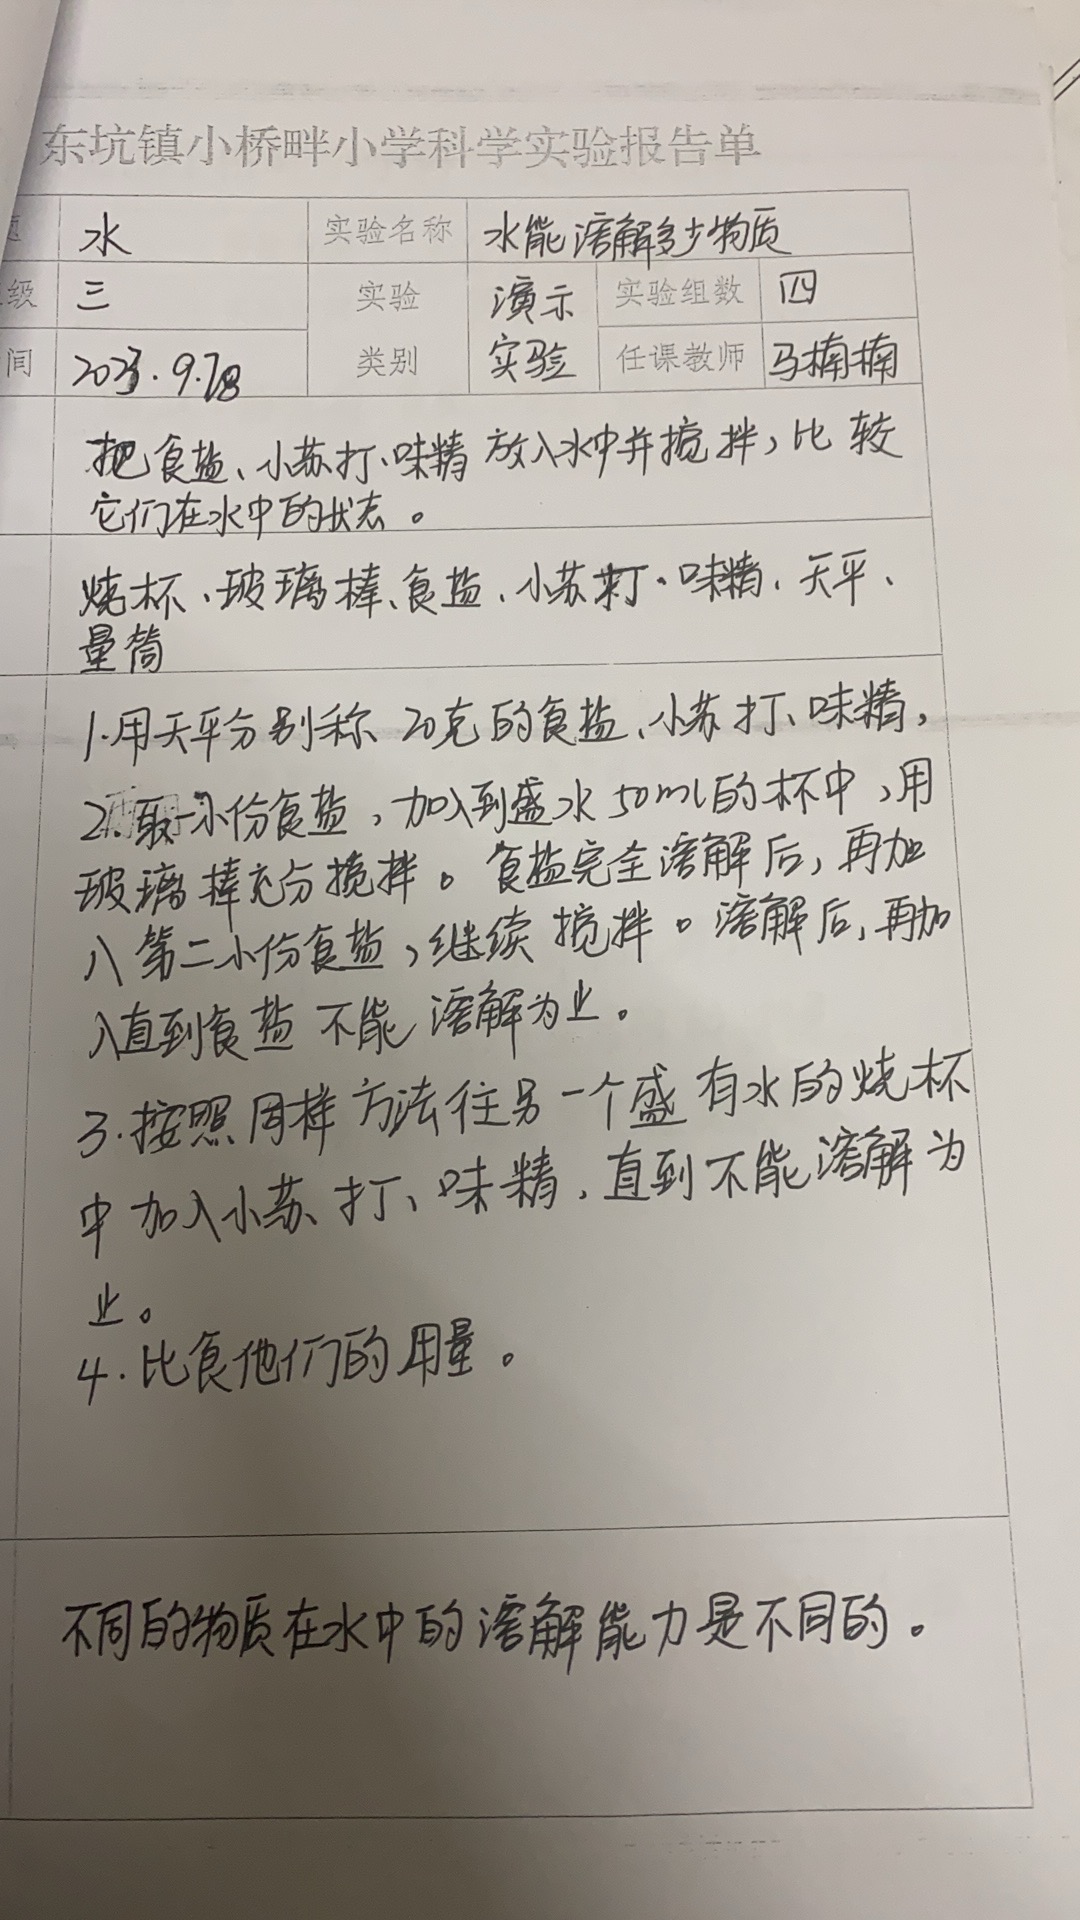 东坑镇小桥畔小学科学实验报告单
题 水 实验名称 水能溶解多少物质
级 三 实验 演示 实验组数 四
间 2023.9.18 类别 实验 任课教师 马楠楠
把食盐、小苏打、味精放入水中并搅拌，比较
它们在水中的状态。
烧杯、玻璃棒、食盐、小苏打、味精、天平、
量筒
1.用天平分别称20克的食盐、小苏打、味精，
2.取一小份食盐，加入到盛水50ml的杯中，用
玻璃棒充分搅拌。食盐完全溶解后，再加
入第二小份食盐，继续搅拌。溶解后，再加
入直到食盐不能溶解为止。
3.按照同样方法往另一个盛有水的烧杯
中加入小苏打、味精，直到不能溶解为
止。
4.比食他们的用量。
不同的物质在水中的溶解能力是不同的。